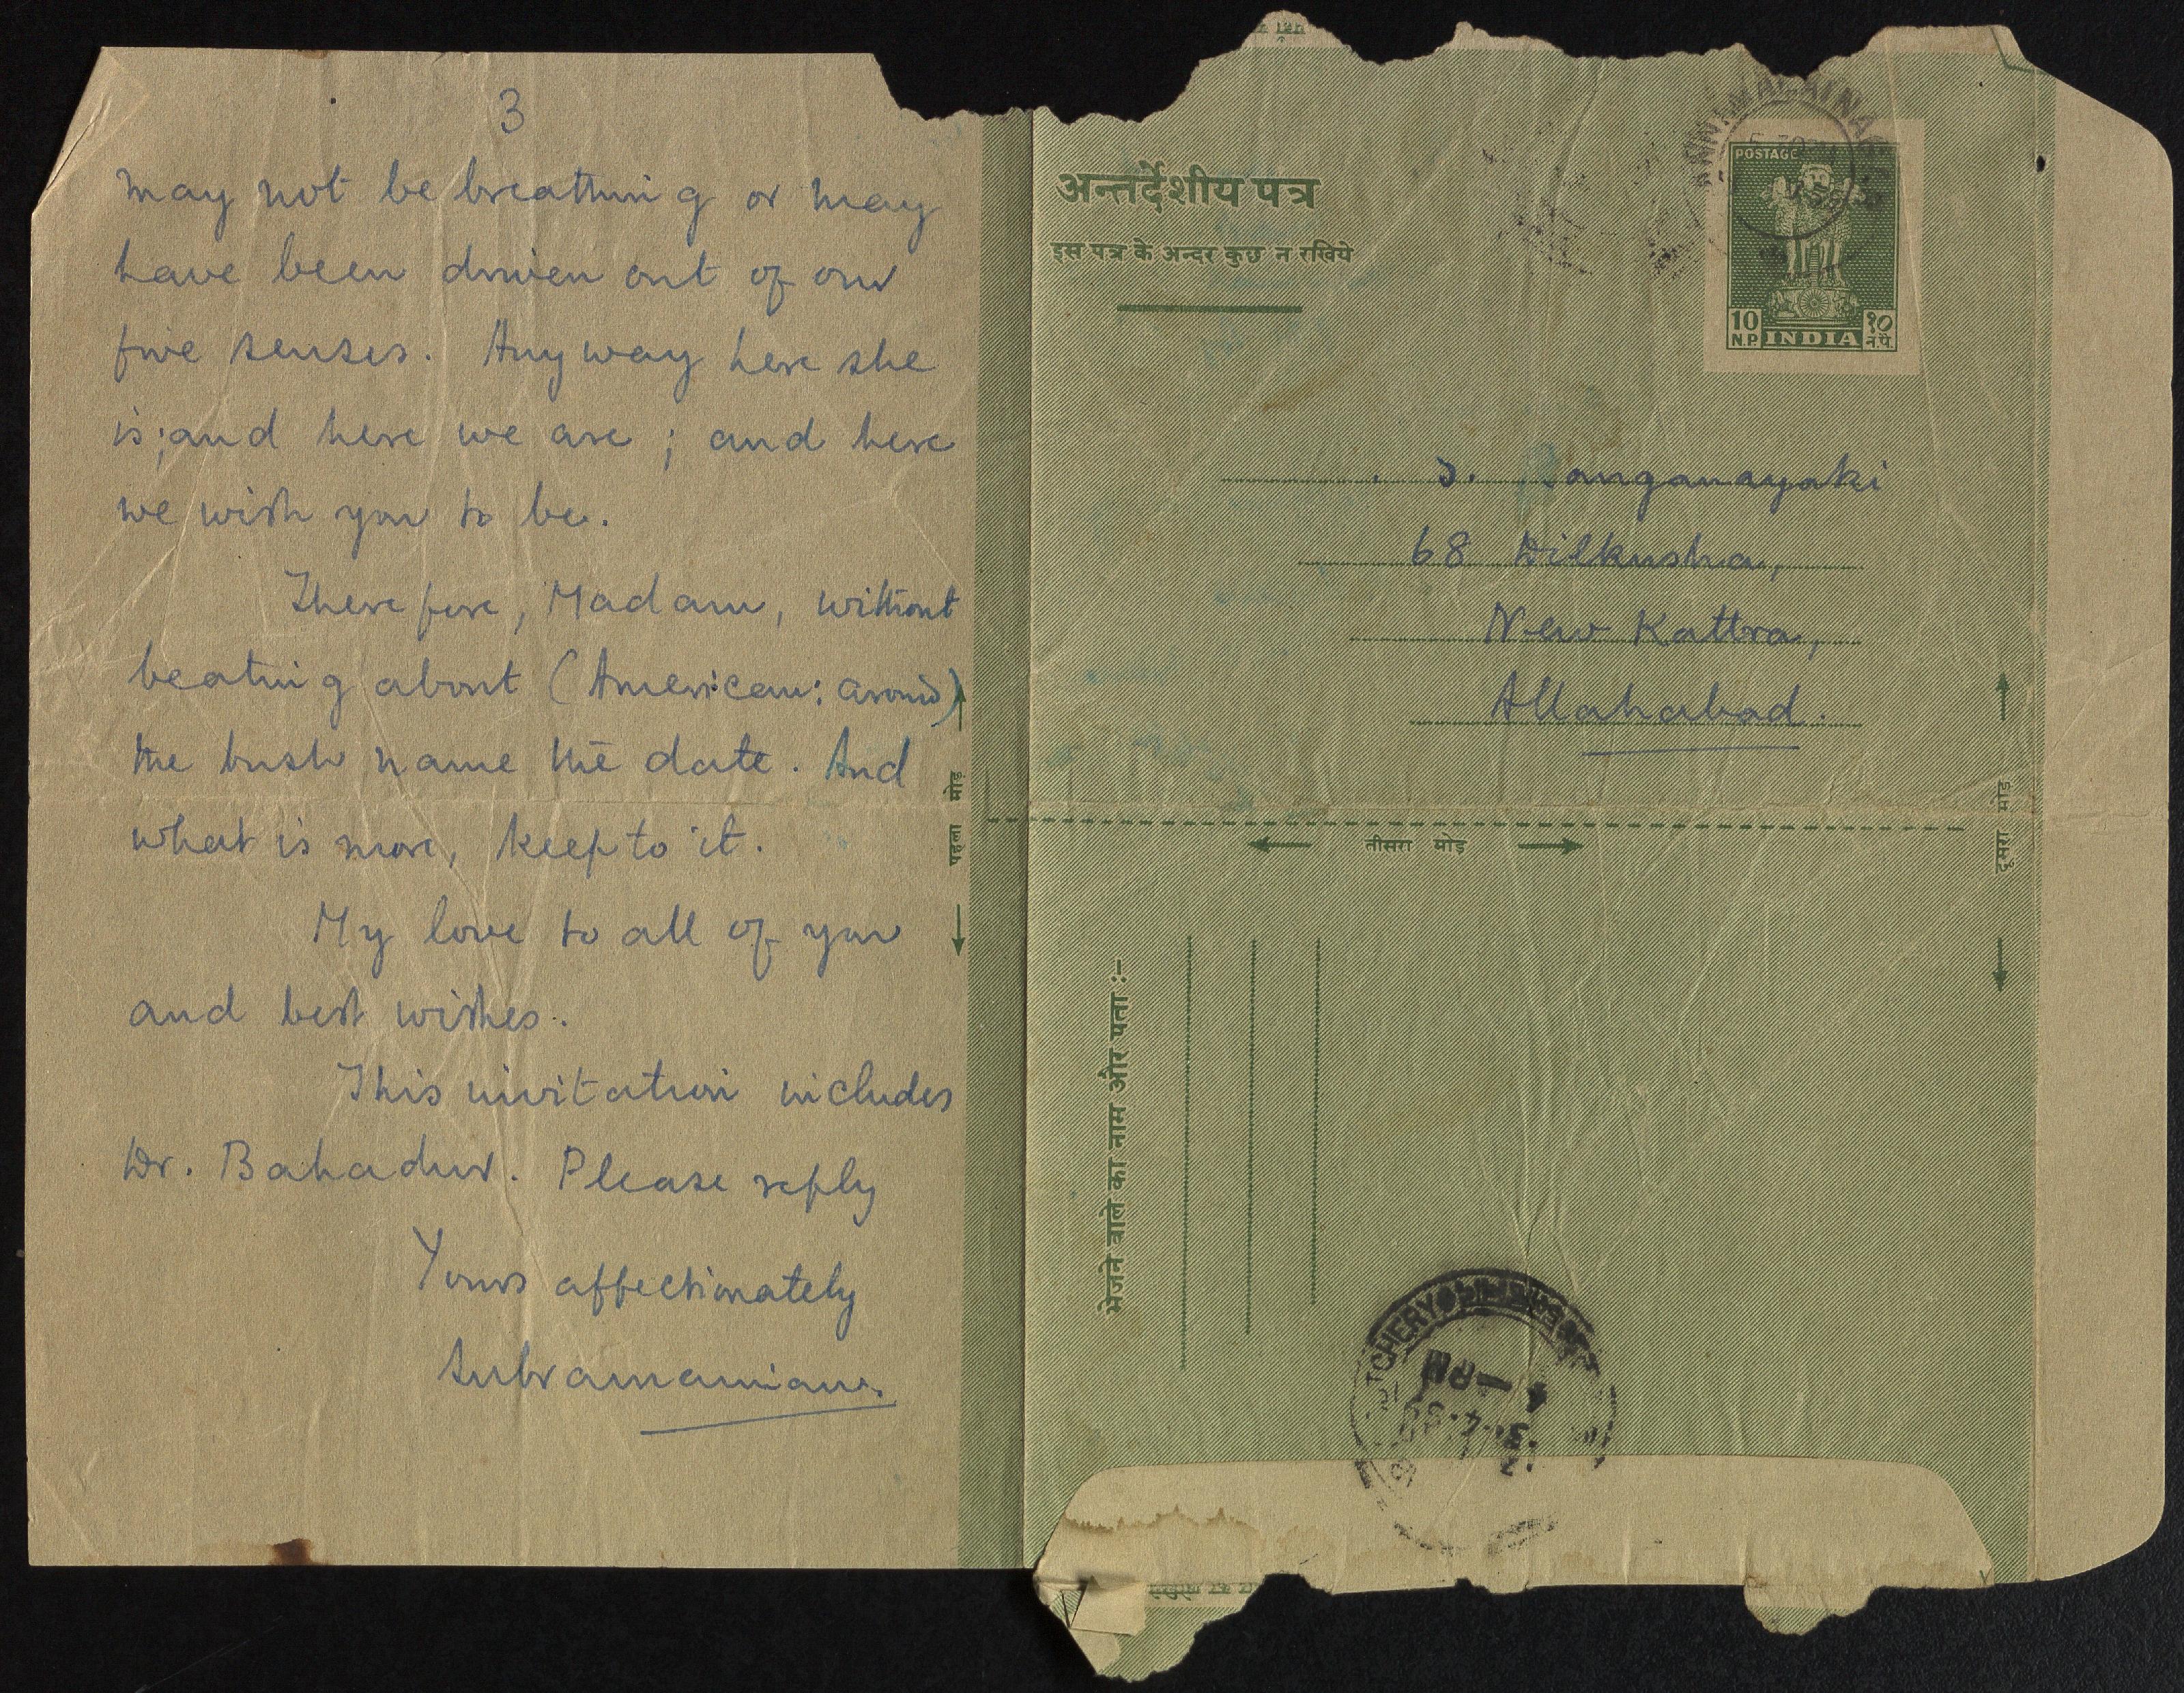 3
may not be breathing or may
have been driven out of our
five senses. Anyway here she
is; and here we are; and here
we wish you to be.
Therefore, Madam, without
beating about (American: around)
the bush name the date. And
what is more, keep to it.
My love to all of you
and best wishes.
This invitation includes
Dr. Bahadur. Please reply
Yours affectionately
Subramaniam.
पहला मोड़
अन्तर्देशीय पत्र
इस पत्र के अन्दर कुछ न रखिये
ANNAMALAI NAGAR
POSTAGE
10 N.P. INDIA १० न.पै.
S. Ranganayaki
68 Dilkusha,
New Kattra,
Allahabad.
तीसरा मोड़
दूसरा मोड़
भेजने वाले का नाम और पता :-
TCHERY
4-PM